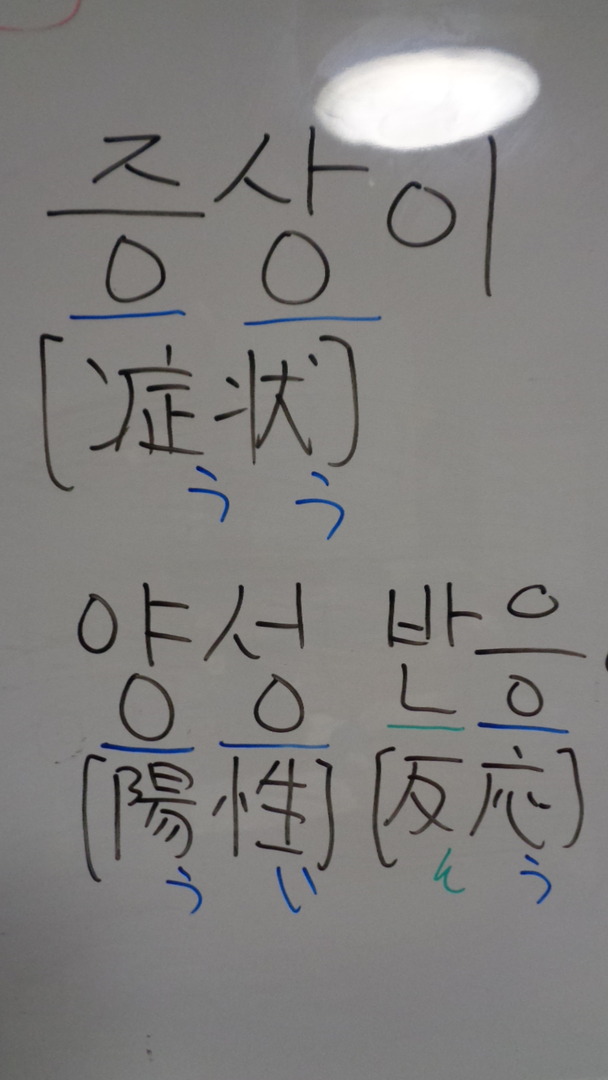 증상이
[症状]
う う
양성 반응
[陽性] [反応]
う い ん う